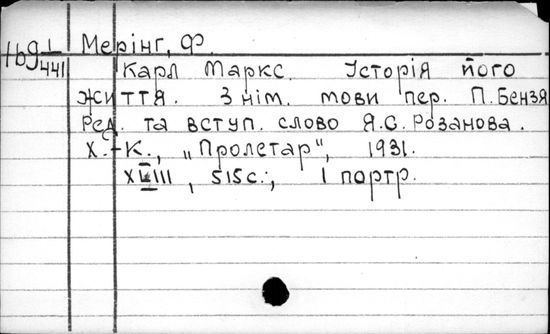 Мерінг, Ф.
1б9 1/441
Карл Маркс. Історія його
життя. З нім. мови пер. П. Бензя
Ред. та вступ. слово Я.С. Розанова.
Х.-К., „Пролетар", 1931.
515с., 1 портр.